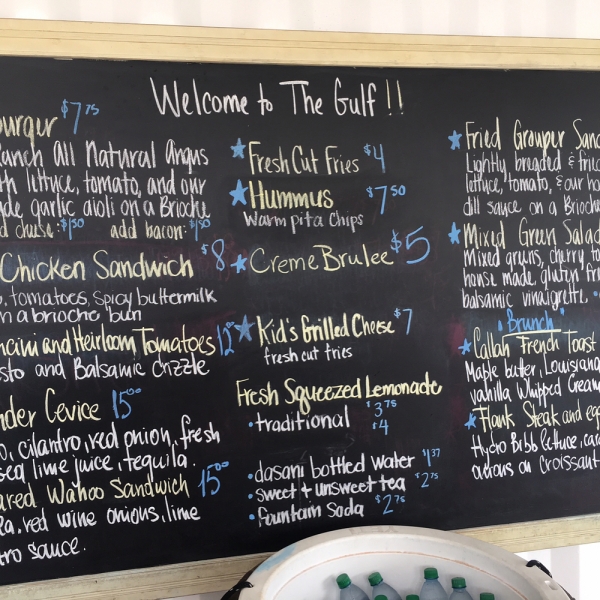 Welcome to The Gulf !!
burger $7.75
Ranch All Natural Angus
th lettuce, tomato, and our
de garlic aioli on a Brioche
d cheese: $1.50 add bacon: $1.50
Chicken Sandwich $8
, tomatoes, spicy buttermilk
n a brioche bun
ncini and Heirloom Tomatoes 12
sto and Balsamic Drizzle
nder Cevice 15.00
o, cilantro, red onion, fresh
sea lime juice, tequila.
ared Wahoo Sandwich 15.00
la, red wine onions, lime
tro sauce.
Fresh Cut Fries $4
Hummus $7.50
Warm pita Chips
Creme Brulee $5
Kid's Grilled Cheese $7
fresh cut fries
Fresh Squeezed Lemonade
• traditional $3.75
$4
• dasani bottled water $1.37
• sweet & unsweet tea $2.75
• fountain soda $2.75
Fried Grouper Sand
Lightly breaded & fried
lettuce, tomato, & our ho
dill sauce on a Brioche
Mixed Green Salad
Mixed greens, cherry to
house made gluten fr
balsamic vinaigrette.
Brunch
Callah French Toast
Maple butter, Louisiana
vanilla Whipped Cream
Flank Steak and egg
Hydro Bibb lettuce, car
onions on Croissant